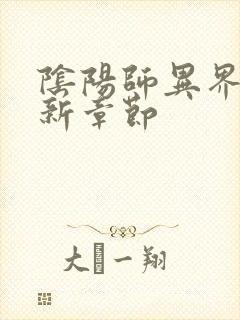 陰陽師異界
新章節
大一翔